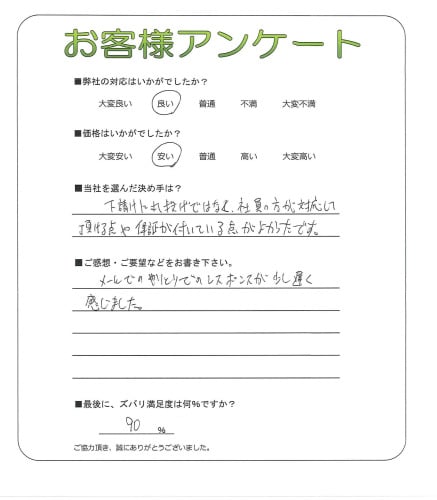 お客様アンケート
■弊社の対応はいかがでしたか？
大変良い 良い 普通 不満 大変不満
■価格はいかがでしたか？
大変安い 安い 普通 高い 大変高い
■当社を選んだ決め手は？
下請けへ丸投げではなく、社員の方が対応して
頂ける点や保証が付いている点がよかったです。
■ご感想・ご要望などをお書き下さい。
メールでのやりとりでのレスポンスが少し遅く
感じました。
■最後に、ズバリ満足度は何%ですか？
90 %
ご協力頂き、誠にありがとうございました。